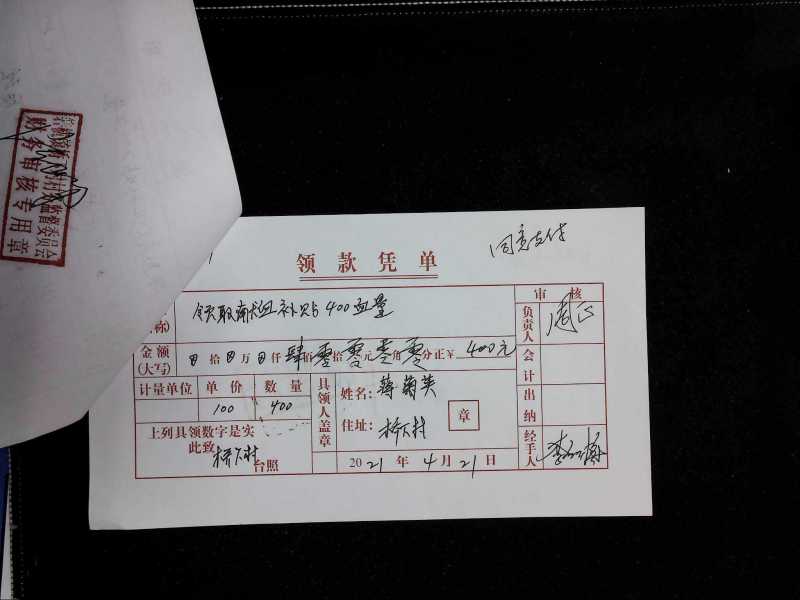 同意支付
领款凭单
领取献血补贴400血量
称)
审核
负责人
金额(大写) 0拾0万0仟肆佰零拾零元零角零分正¥400元
会计
计量单位 单价 数量
100 400
具领人盖章
姓名:
章
住址:桥下村
出纳
上列具领数字是实
此致
桥下村台照
2021年4月21日
经手人
监督委员会
财务审核专用章